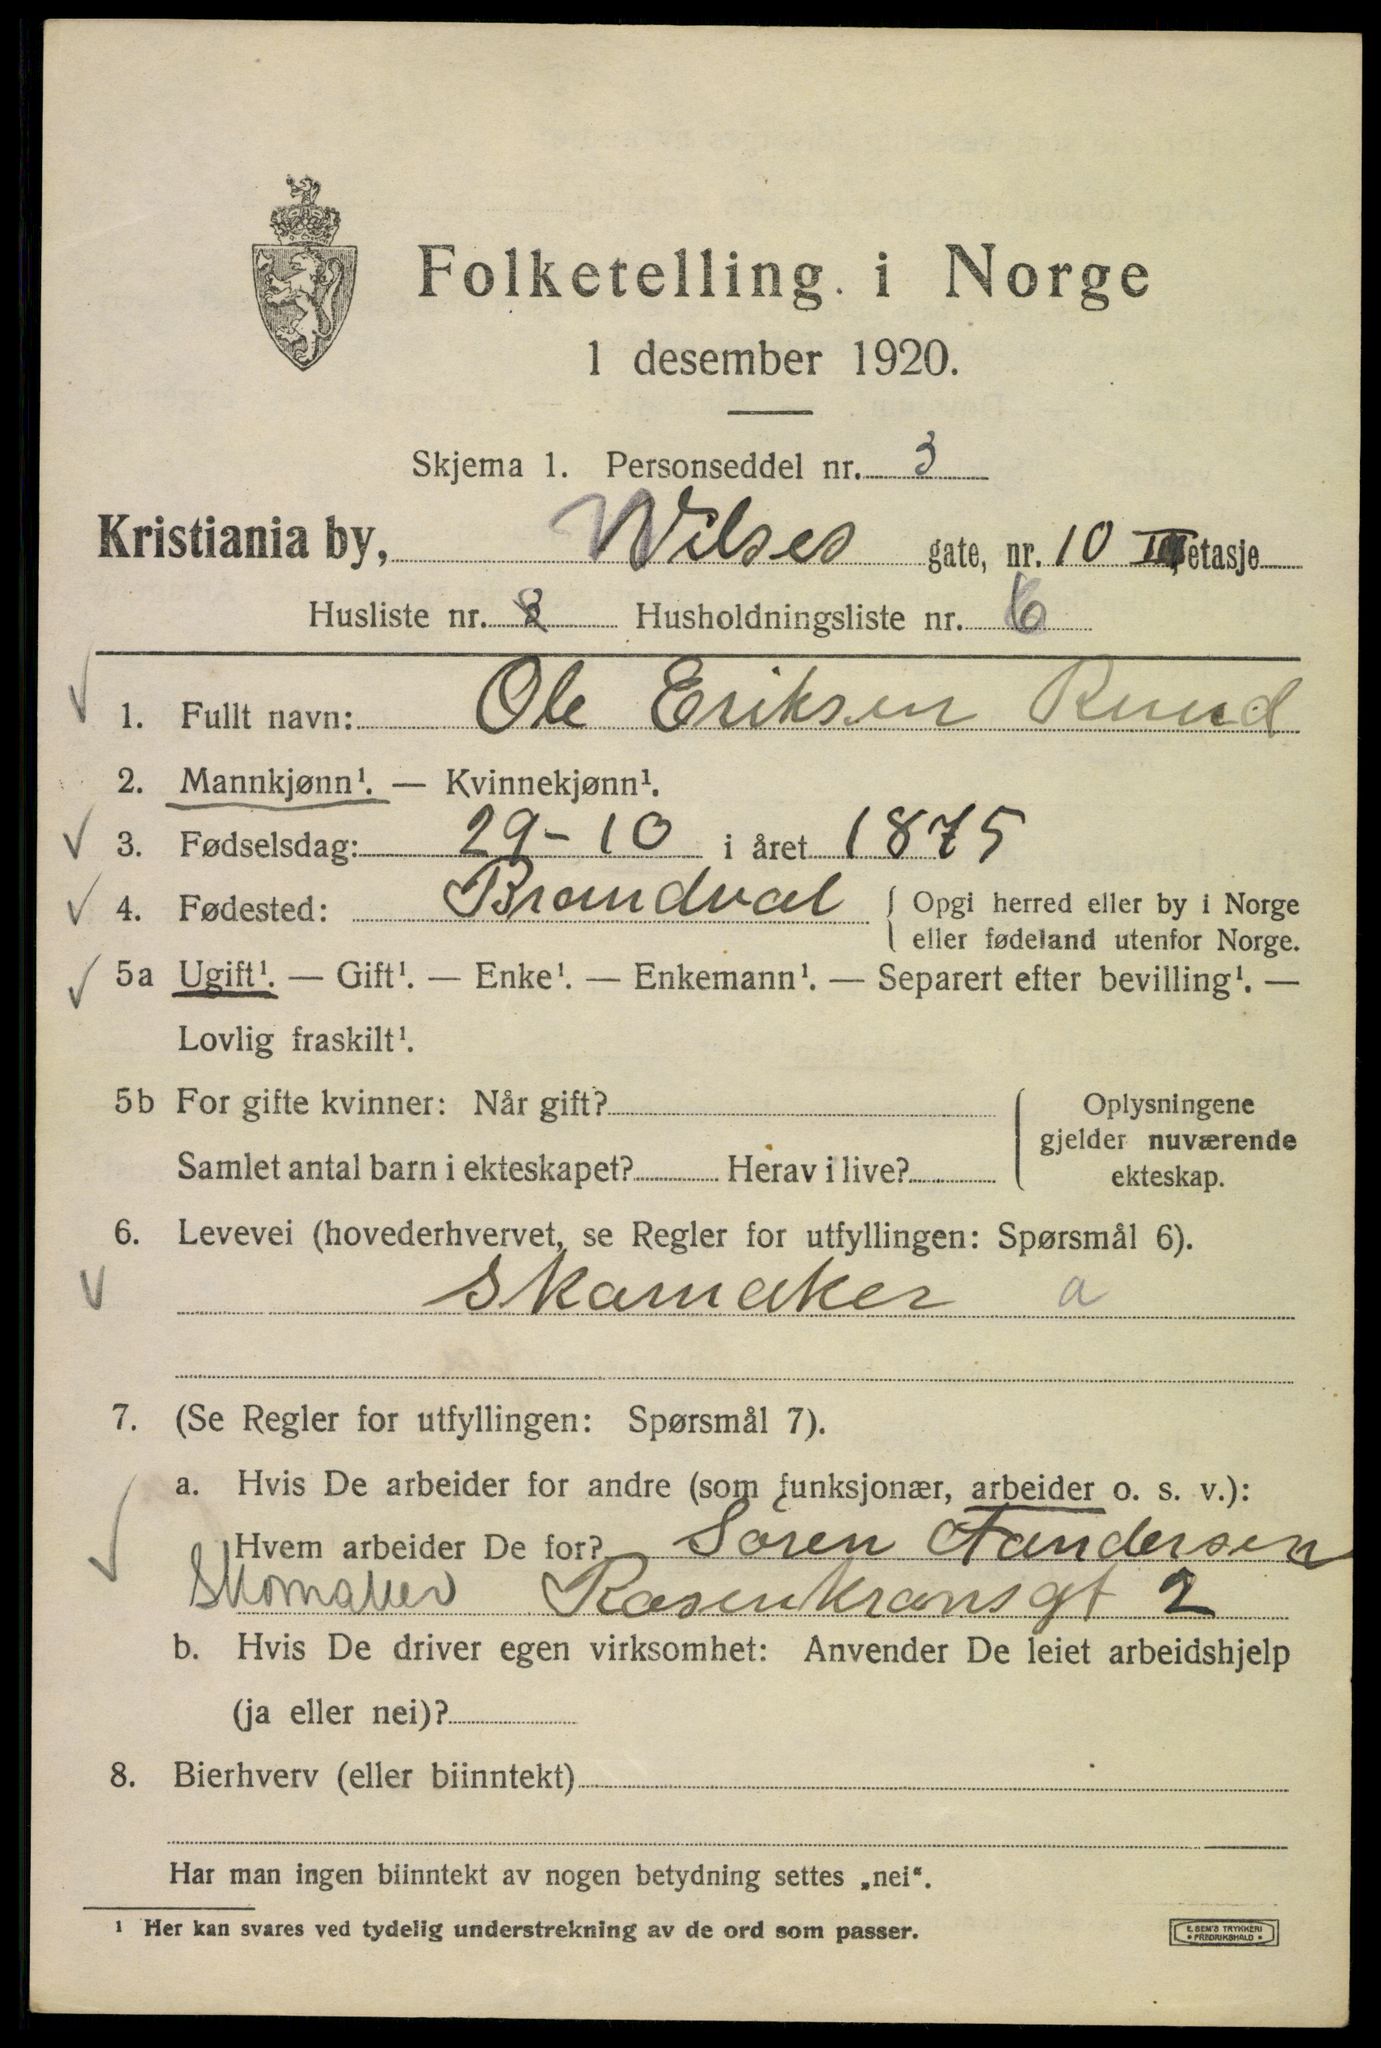 Folketelling i Norge
1 desember 1920.
Skjema 1. Personseddel nr. 3
Kristiania by, Wilses gate, nr. 10 III etasje
Husliste nr. 2 Husholdningsliste nr. 6
1. Fullt navn: Ole Eriksen Ruud
2. Mannkjønn¹. — Kvinnekjønn¹.
3. Fødselsdag: 29-10 i året 1875
4. Fødested: Brandval { Opgi herred eller by i Norge
eller fødeland utenfor Norge.
5a Ugift¹. — Gift¹. — Enke¹. — Enkemann¹. — Separert efter bevilling¹. —
Lovlig fraskilt¹.
5b For gifte kvinner: Når gift? { Oplysningene
gjelder nuværende
Samlet antal barn i ekteskapet? Herav i live?
ekteskap.
6. Levevei (hovederhvervet, se Regler for utfyllingen: Spørsmål 6).
Skomaker a
7. (Se Regler for utfyllingen: Spørsmål 7).
a. Hvis De arbeider for andre (som funksjonær, arbeider o. s. v.):
Hvem arbeider De for? Sören
Skomaker Rosenkransgt 2
b. Hvis De driver egen virksomhet: Anvender De leiet arbeidshjelp
(ja eller nei)?
8. Bierhverv (eller biinntekt)
Har man ingen biinntekt av nogen betydning settes „nei“.
¹ Her kan svares ved tydelig understrekning av de ord som passer.
E. SEM'S TRYKKERI
• FREDRIKSHALD •